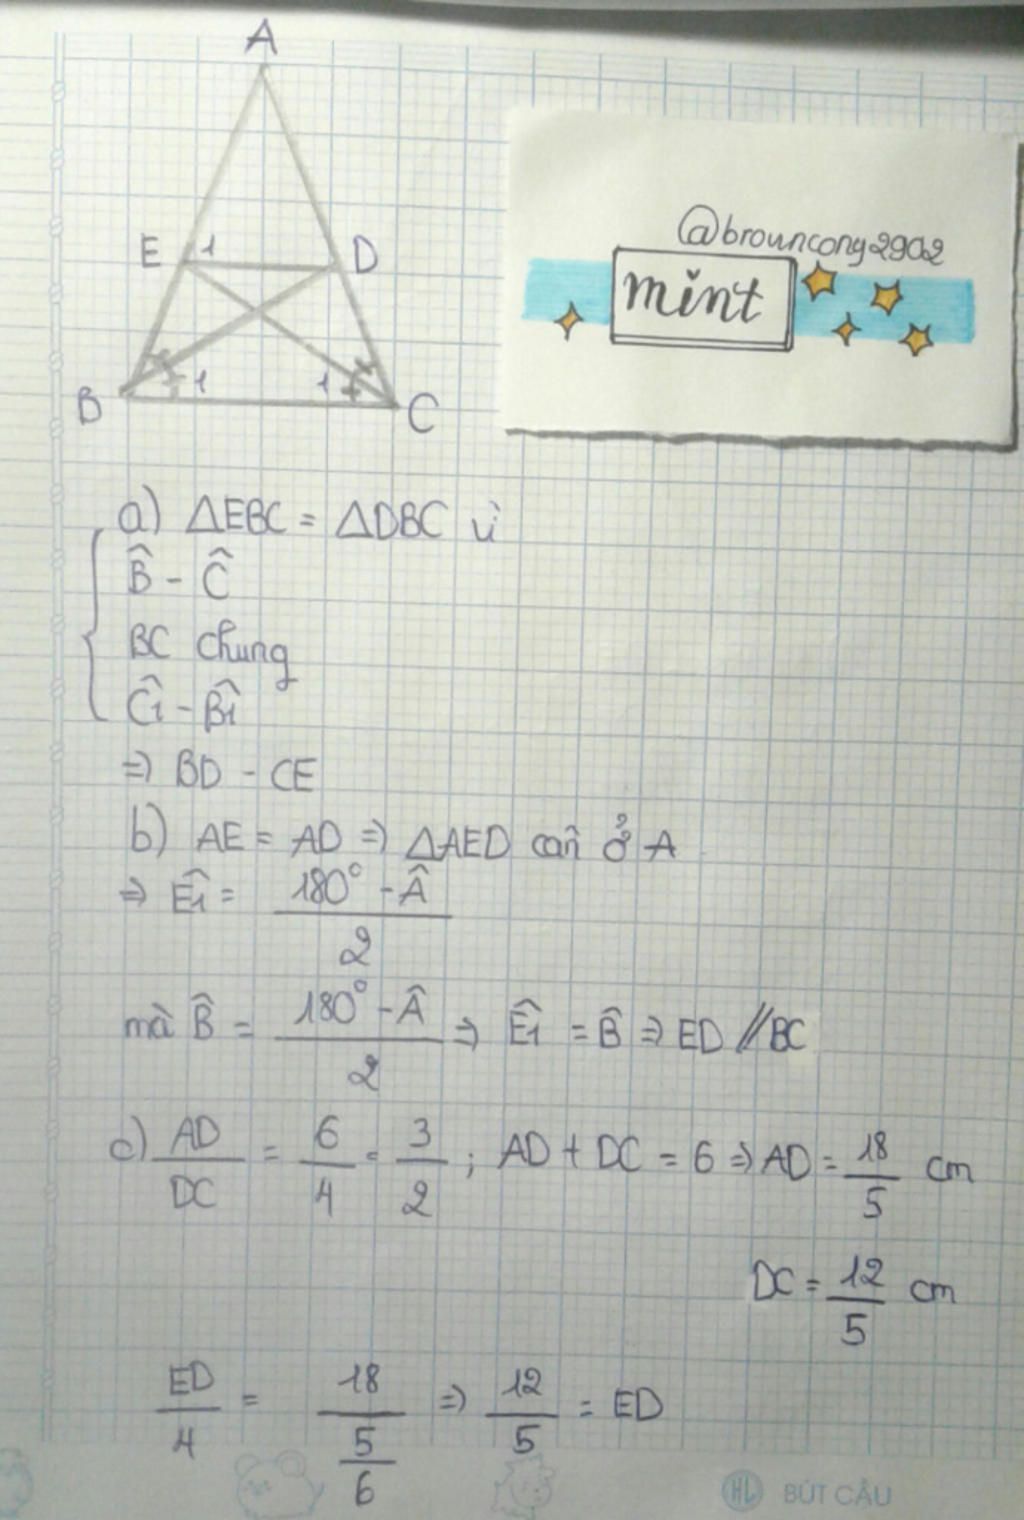 A
E 1 D
B 1 1 C
@brouncony2902
mint
a) ΔEBC = ΔDBC vì
B̂ - Ĉ
BC chung
Ĉ1 - B̂1
=> BD - CE
b) AE = AD => ΔAED cân ở A
=> Ê1 = (180° - Â)/2
mà B̂ = (180° - Â)/2 => Ê1 = B̂ => ED // BC
c) AD/DC = 6/4 = 3/2 ; AD + DC = 6 => AD = 18/5 cm
DC = 12/5 cm
ED/4 = 18/5/6 => 12/5 = ED
HL BÚT CÂU